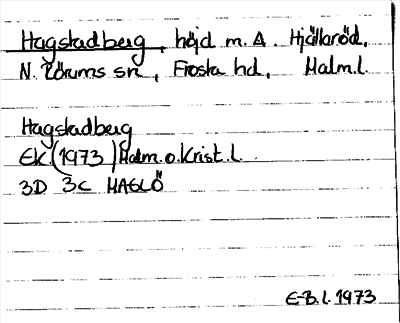 Hagstadberg, höjd m. Δ. Hjällaröd,
N. Rörums sn, Frosta hd, Malm.l.
Hagstadberg
EK (1973) Malm.o.Krist.l.
3D 3c HAGLÖ
E-B.l. 1973